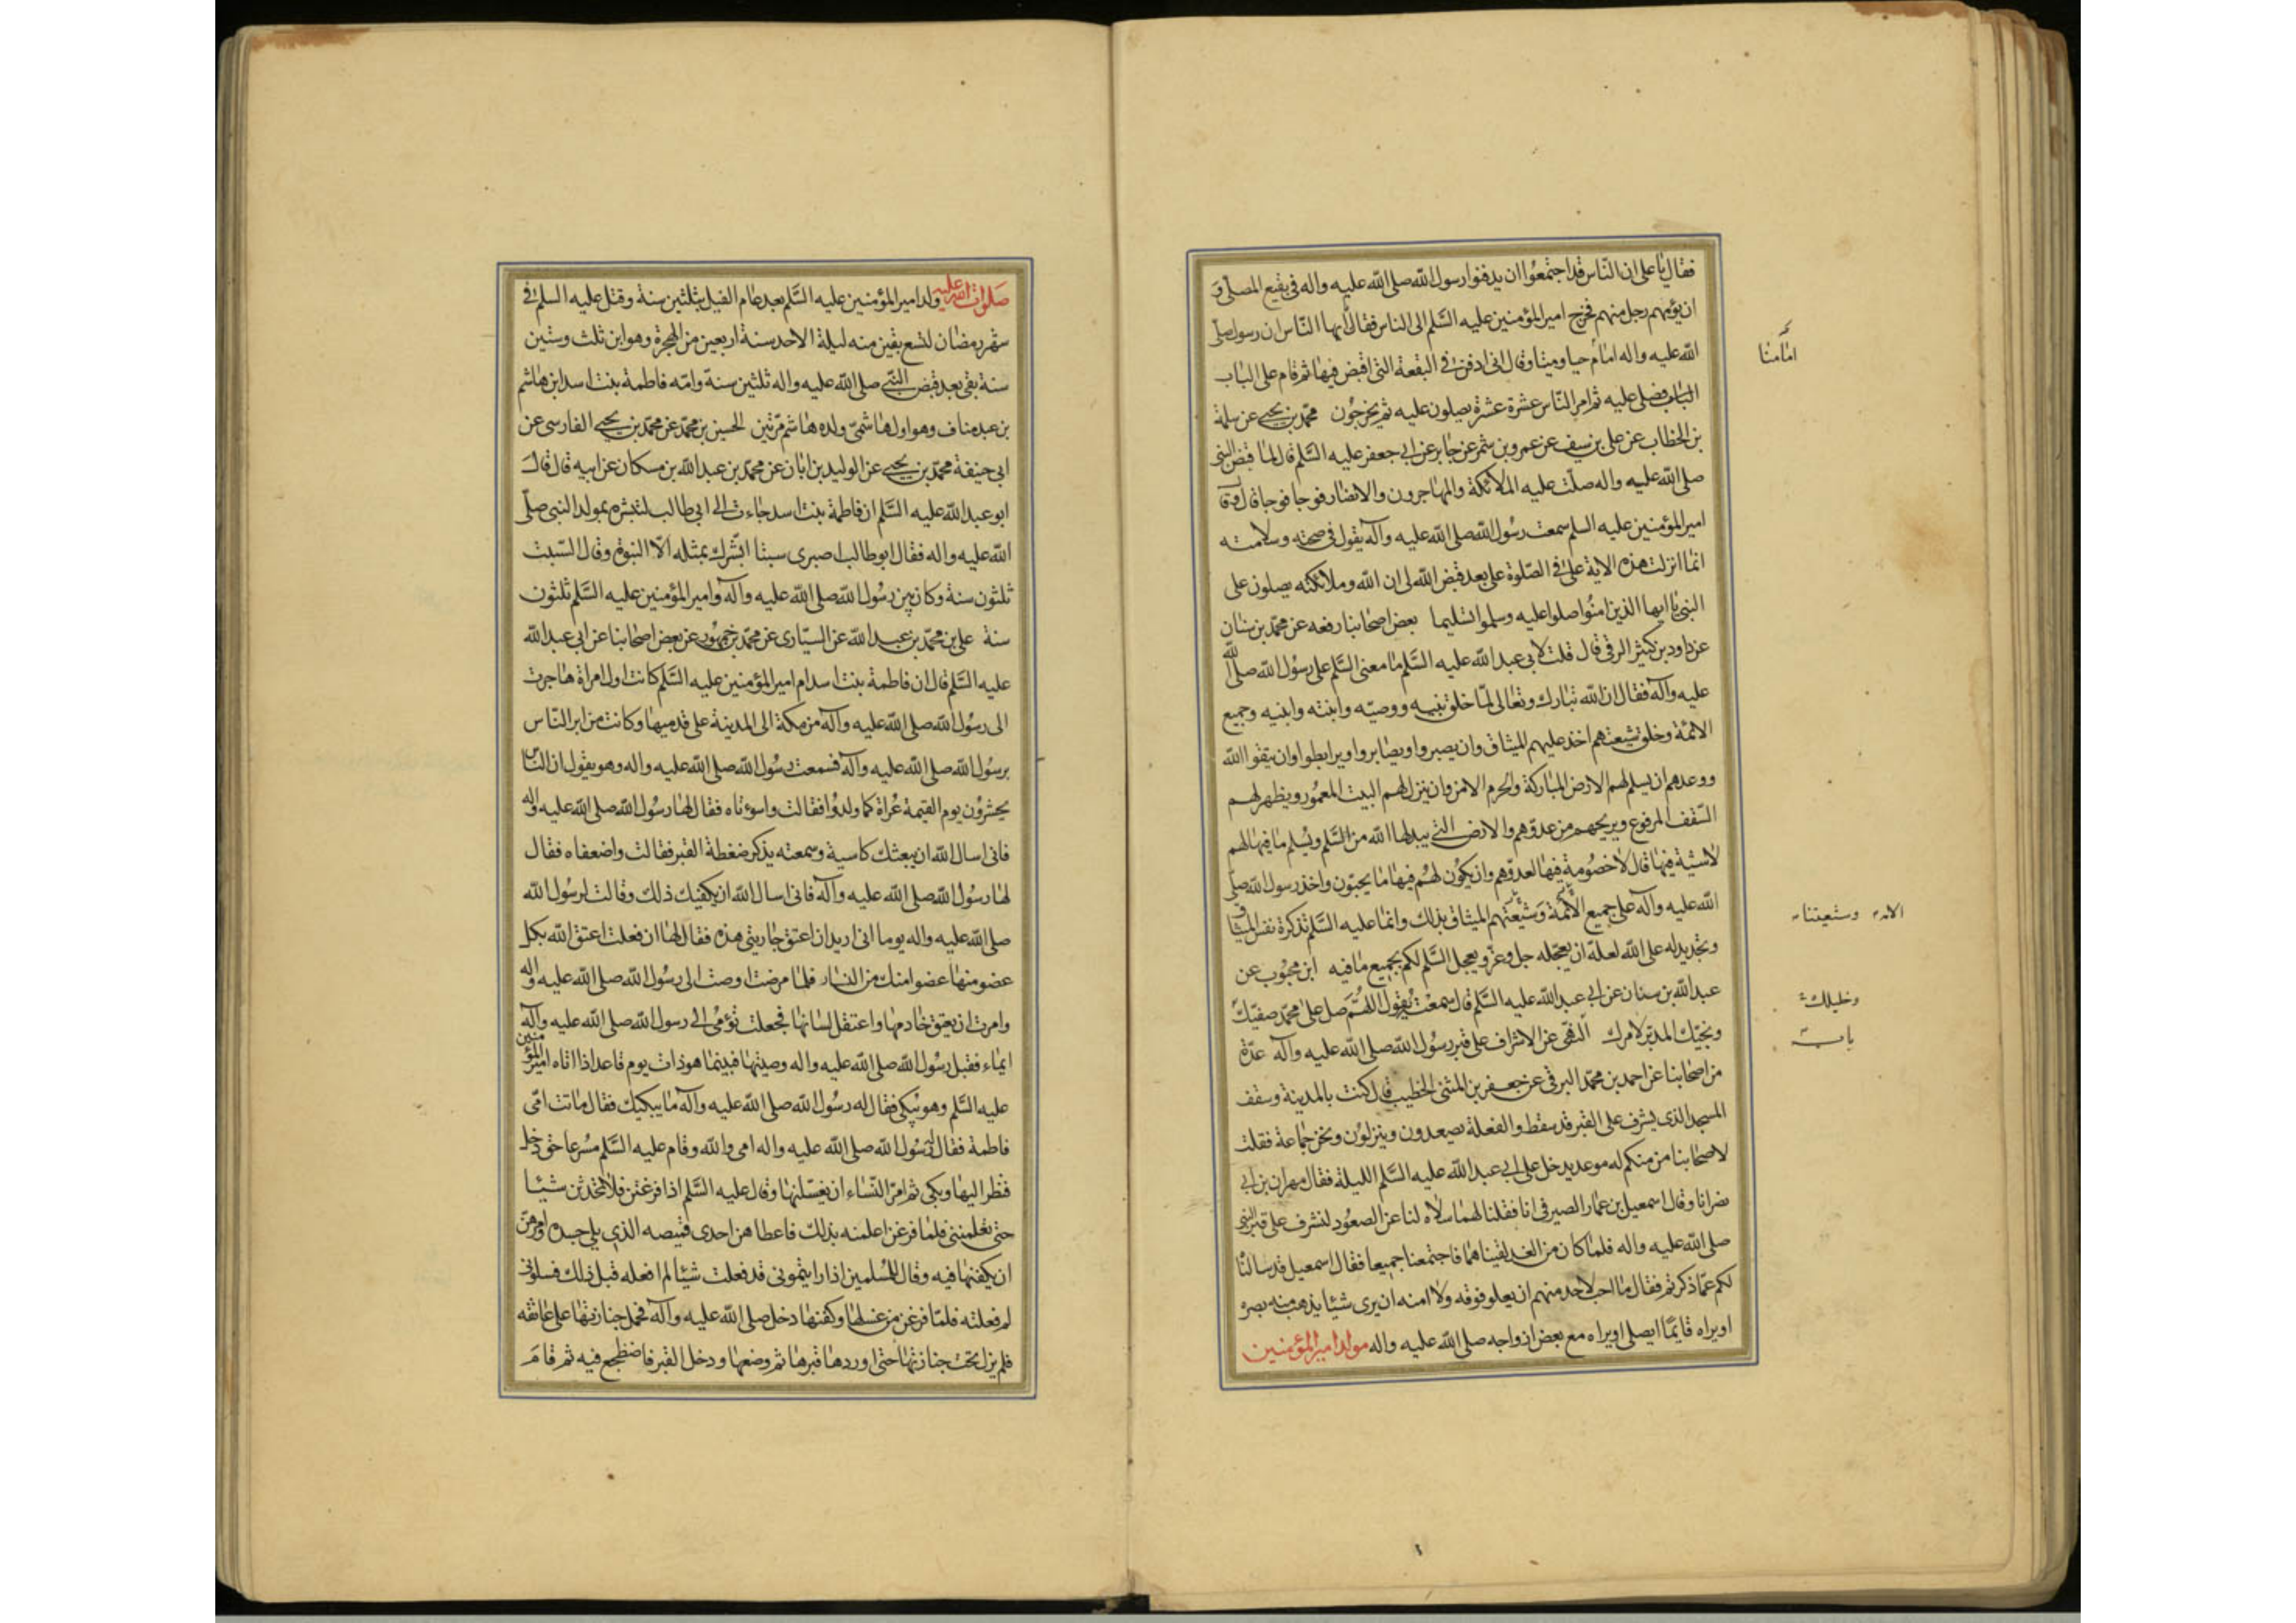 فقال يا على ان الناس قد اجتمعوا ان يدفنوا رسول الله صلى الله عليه واله فى بقيع المصلى و
ان يؤمهم رجل منهم فخرج امير المؤمنين عليه السلم الى الناس فقال ايها الناس ان رسول صلى
الله عليه واله امام حيا وميتا وقال انى ادفن فى البقعة التى اقبض فيها ثم قام على الباب
الباب فصلى عليه ثم امر الناس عشرة عشرة يصلون عليه ثم يخرجون محمد بن يحيى عن سلمة
بن الخطاب عن على بن سيف عن عمرو بن شمر عن جابر عن ابى جعفر عليه السلم قال لما قبض النبى
صلى الله عليه واله صلت عليه الملائكة والمهاجرون والانصار فوجا فوجا قال وقا
امير المؤمنين عليه السلم سمعت رسول الله صلى الله عليه وآله يقول فى صحته وسلامته
انما انزلت هذه الاية على فى الصلوة على بعد قبض الله لى ان الله وملائكته يصلون على
النبى يا ايها الذين امنوا صلوا عليه وسلموا تسليما بعض اصحابنا رفعه عن محمد بن سنان
عن داود بن كثير الرقى قال قلت لابى عبد الله عليه السلم ما معنى السلم على رسول الله صلى الله
عليه وآله فقال ان الله تبارك وتعالى لما خلق نبيه ووصيه وابنته وابنيه وجميع
الائمة وخلق شيعتهم اخذ عليهم الميثاق وان يصبروا ويصابروا ويرابطوا وان يتقوا الله
ووعدهم ان يسلم لهم الارض المباركة والحرم الامن وان ينزل لهم البيت المعمور ويظهر لهم
السقف المرفوع ويريحهم من عدوهم والارض التى يبدلها الله من السلم ويسلم ما فيها لهم
لاشية فيها قال لا خصومة فيها لعدوهم وان يكون لهم فيها ما يحبون واخذ رسول الله صلى
الله عليه وآله على جميع الائمة وشيعتهم الميثاق بذلك وانما عليه السلم تذكرة نفس الميثاق
وتجديد له على الله لعله ان يعجله جل وعز ويعجل السلم لكم بجميع ما فيه ابن محبوب عن
عبد الله بن سنان عن ابى عبد الله عليه السلم قال سمعته يقول اللهم صل على محمد صفيك
ونجيك المدبر لامرك النهى عن الاشراف على قبر رسول الله صلى الله عليه وآله عدة
من اصحابنا عن احمد بن محمد البرقى عن جعفر بن المثنى الخطيب قال كنت بالمدينة وسقف
المسجد الذى يشرف على القبر قد سقط والفعلة يصعدون وينزلون ونحن جماعة فقلت
لاصحابنا من منكم له موعد يدخل على ابى عبد الله عليه السلم الليلة فقال مهران بن ابى
نصر انا وقال اسمعيل بن عمار الصيرفى انا فقلنا لهما سلاه لنا عن الصعود لنشرف على قبر النبى
صلى الله عليه واله فلما كان من الغد لقيناهما فاجتمعنا جميعا فقال اسمعيل قد سالنا
لكم عما ذكرتم فقال ما احب لاحد منهم ان يعلو فوقه ولا امنه ان يرى شيئا يذهب منه بصره
او يراه قايما يصلى او يراه مع بعض ازواجه صلى الله عليه واله مولد امير المؤمنين
امامنا
وشيعتنا
وخليلك
صلوات الله عليه ولد امير المؤمنين عليه السلم بعد عام الفيل بثلثين سنة وقتل عليه السلم فى
شهر رمضان لتسع بقين منه ليلة الاحد سنة اربعين من الهجرة وهو ابن ثلث وستين
سنة بقى بعد قبض النبى صلى الله عليه واله ثلثين سنة وامه فاطمة بنت اسد ابن هاشم
بن عبد مناف وهو اول هاشمى ولده هاشم مرتين الحسين بن محمد عن محمد بن يحيى الفارسى عن
ابى حنيفة محمد بن يحيى عن الوليد بن ابان عن محمد بن عبد الله بن مسكان عن ابيه قال قال
ابو عبد الله عليه السلم ان فاطمة بنت اسد جاءت الى ابى طالب لتبشره بمولد النبى صلى
الله عليه واله فقال ابو طالب اصبرى سبتا ابشرك بمثله الا النبوة وقال السبت
ثلثون سنة وكان بين رسول الله صلى الله عليه وآله وامير المؤمنين عليه السلم ثلثون
سنة على بن محمد بن عبد الله عن السيارى عن محمد بن جمهور عن بعض اصحابنا عن ابى عبد الله
عليه السلم قال ان فاطمة بنت اسد ام امير المؤمنين عليه السلم كانت اول امراة هاجرت
الى رسول الله صلى الله عليه وآله من مكة الى المدينة على قدميها وكانت من ابر الناس
برسول الله صلى الله عليه وآله فسمعت رسول الله صلى الله عليه واله وهو يقول ان الناس
يحشرون يوم القيمة عراة كما ولدوا فقالت واسوءتاه فقال لها رسول الله صلى الله عليه واله
فانى اسال الله ان يبعثك كاسية وسمعته يذكر ضغطة القبر فقالت واضعفاه فقال
لها رسول الله صلى الله عليه وآله فانى اسال الله ان يكفيك ذلك وقالت لرسول الله
صلى الله عليه واله يوما انى اريد ان اعتق جاريتى هذه فقال لها ان فعلت اعتق الله بكل
عضو منها عضوا منك من النار فلما مرضت اوصت الى رسول الله صلى الله عليه واله
وامرت ان يعتق خادمها واعتقل لسانها فجعلت تؤمى الى رسول الله صلى الله عليه وآله
ايماء فقبل رسول الله صلى الله عليه واله وصيتها فبينما هو ذات يوم قاعد اذ اتاه امير المؤمنين
عليه السلم وهو يبكى فقال له رسول الله صلى الله عليه وآله ما يبكيك فقال ماتت امى
فاطمة فقال رسول الله صلى الله عليه واله امى والله وقام عليه السلم مسرعا حتى دخل
فنظر اليها وبكى ثم امر النساء ان يغسلنها وقال عليه السلم اذا فرغتن فلا تحدثن شيئا
حتى تعلمننى فلما فرغن اعلمنه بذلك فاعطاهن احدى قميصه الذى يلى جسده وامرهن
ان يكفنها فيه وقال للمسلمين اذا رايتمونى قد فعلت شيئا لم افعله قبل ذلك فسلونى
لم فعلته فلما فرغن من غسلها وكفنها دخل صلى الله عليه وآله فحمل جنازتها على عاتقه
فلم يزل تحت جنازتها حتى اوردها قبرها ثم وضعها ودخل القبر فاضطجع فيه ثم قام